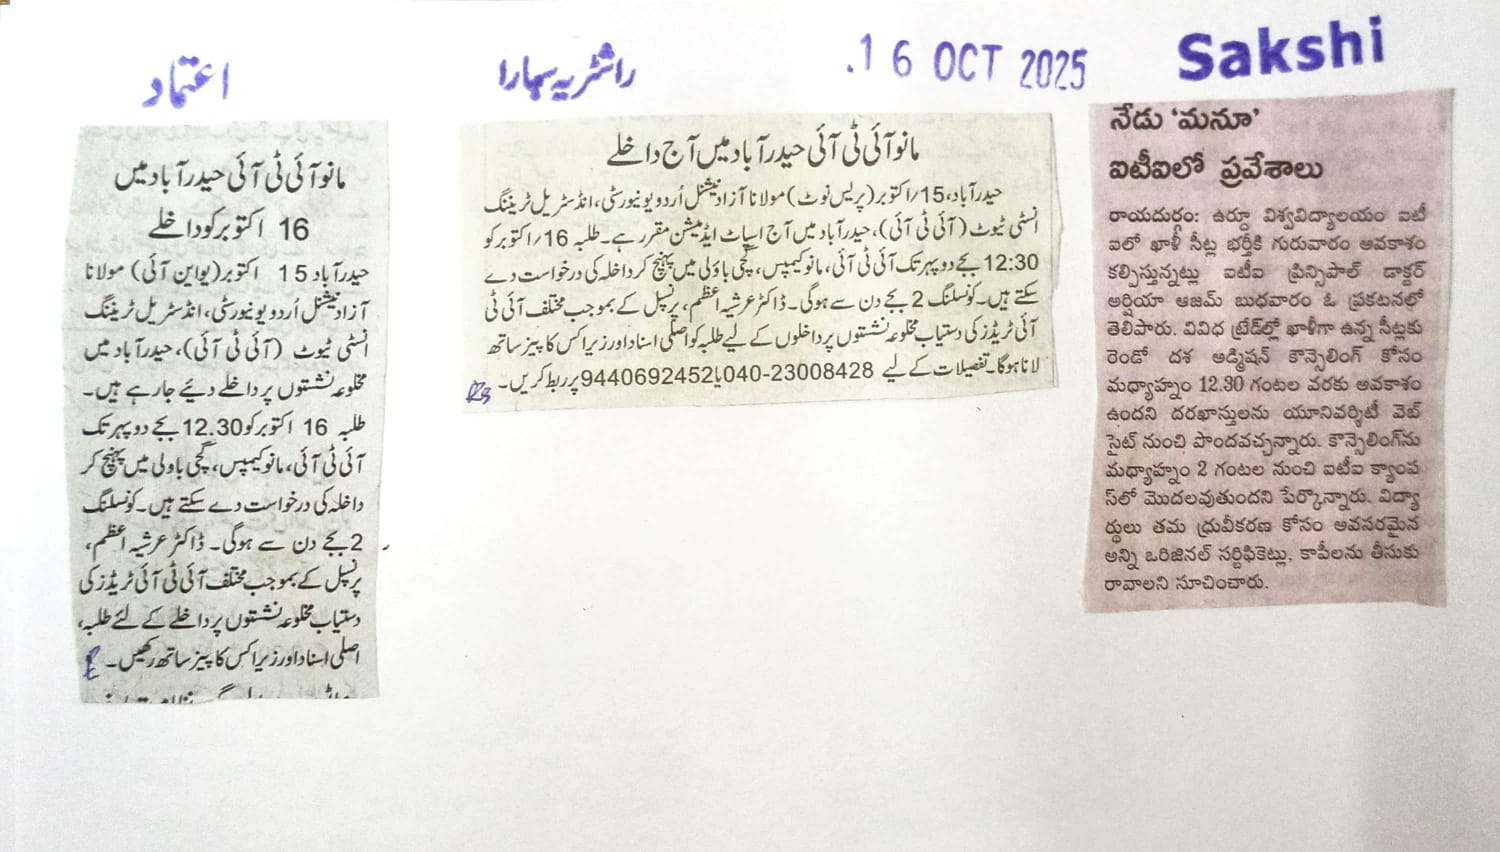 اعتماد
راشٹریہ سہارا
.16 OCT 2025
Sakshi
مانو آئی ٹی آئی حیدرآباد میں
16 اکتوبر کو داخلے
حیدرآباد 15 اکتوبر (یو این آئی) مولانا
آزاد نیشنل اُردو یونیورسٹی، انڈسٹریل ٹریننگ
انسٹی ٹیوٹ (آئی ٹی آئی)، حیدرآباد میں
مخلوعہ نشستوں پر داخلے دیئے جارہے ہیں۔
طلبہ 16 اکتوبر کو 12.30 بجے دوپہر تک
آئی ٹی آئی، مانو کیمپس، گچی باولی میں پہنچ کر
داخلہ کی درخواست دے سکتے ہیں۔ کونسلنگ
2 بجے دن سے ہوگی۔ ڈاکٹر عرشیہ اعظم،
پرنسپل کے بموجب مختلف آئی ٹی آئی ٹریڈز کی
دستیاب مخلوعہ نشستوں پر داخلے کے لئے طلبہ،
اصلی اسناد اور زیراکس کاپیز ساتھ رکھیں۔
مانو آئی ٹی آئی حیدرآباد میں آج داخلے
حیدرآباد، 15/اکتوبر (پریس نوٹ) مولانا آزاد نیشنل اُردو یونیورسٹی، انڈسٹریل ٹریننگ
انسٹی ٹیوٹ (آئی ٹی آئی)، حیدرآباد میں آج اسپاٹ ایڈمیشن مقرر ہے۔ طلبہ 16/اکتوبر کو
12:30 بجے دوپہر تک آئی ٹی آئی، مانو کیمپس، گچی باؤلی میں پہنچ کر داخلہ کی درخواست دے
سکتے ہیں۔ کونسلنگ 2 بجے دن سے ہوگی۔ ڈاکٹر عرشیہ اعظم، پرنسپل کے بموجب مختلف آئی ٹی
آئی ٹریڈز کی دستیاب مخلوعہ نشستوں پر داخلوں کے لیے طلبہ کو اصلی اسناد اور زیراکس کاپیز ساتھ
لانا ہوگا۔ تفصیلات کے لیے 040-23008428 یا 9440692452 پر ربط کریں۔
నేడు ‘మనూ’
ఐటీఐలో ప్రవేశాలు
రాయదుర్గం: ఉర్దూ విశ్వవిద్యాలయం ఐటీ
ఐలో ఖాళీ సీట్ల భర్తీకి గురువారం అవకాశం
కల్పిస్తున్నట్లు ఐటీఐ ప్రిన్సిపాల్ డాక్టర్
అర్షియా ఆజమ్ బుధవారం ఓ ప్రకటనలో
తెలిపారు. వివిధ ట్రేడ్‌ల్లో ఖాళీగా ఉన్న సీట్లకు
రెండో దశ అడ్మిషన్ కౌన్సెలింగ్ కోసం
మధ్యాహ్నం 12.30 గంటల వరకు అవకాశం
ఉందని దరఖాస్తులను యూనివర్శిటీ వెబ్
సైట్ నుంచి పొందవచ్చన్నారు. కౌన్సెలింగ్‌ను
మధ్యాహ్నం 2 గంటల నుంచి ఐటీఐ క్యాంప
స్‌లో మొదలవుతుందని పేర్కొన్నారు. విద్యా
ర్థులు తమ ధ్రువీకరణ కోసం అవసరమైన
అన్ని ఒరిజినల్ సర్టిఫికెట్లు, కాపీలను తీసుకు
రావాలని సూచించారు.